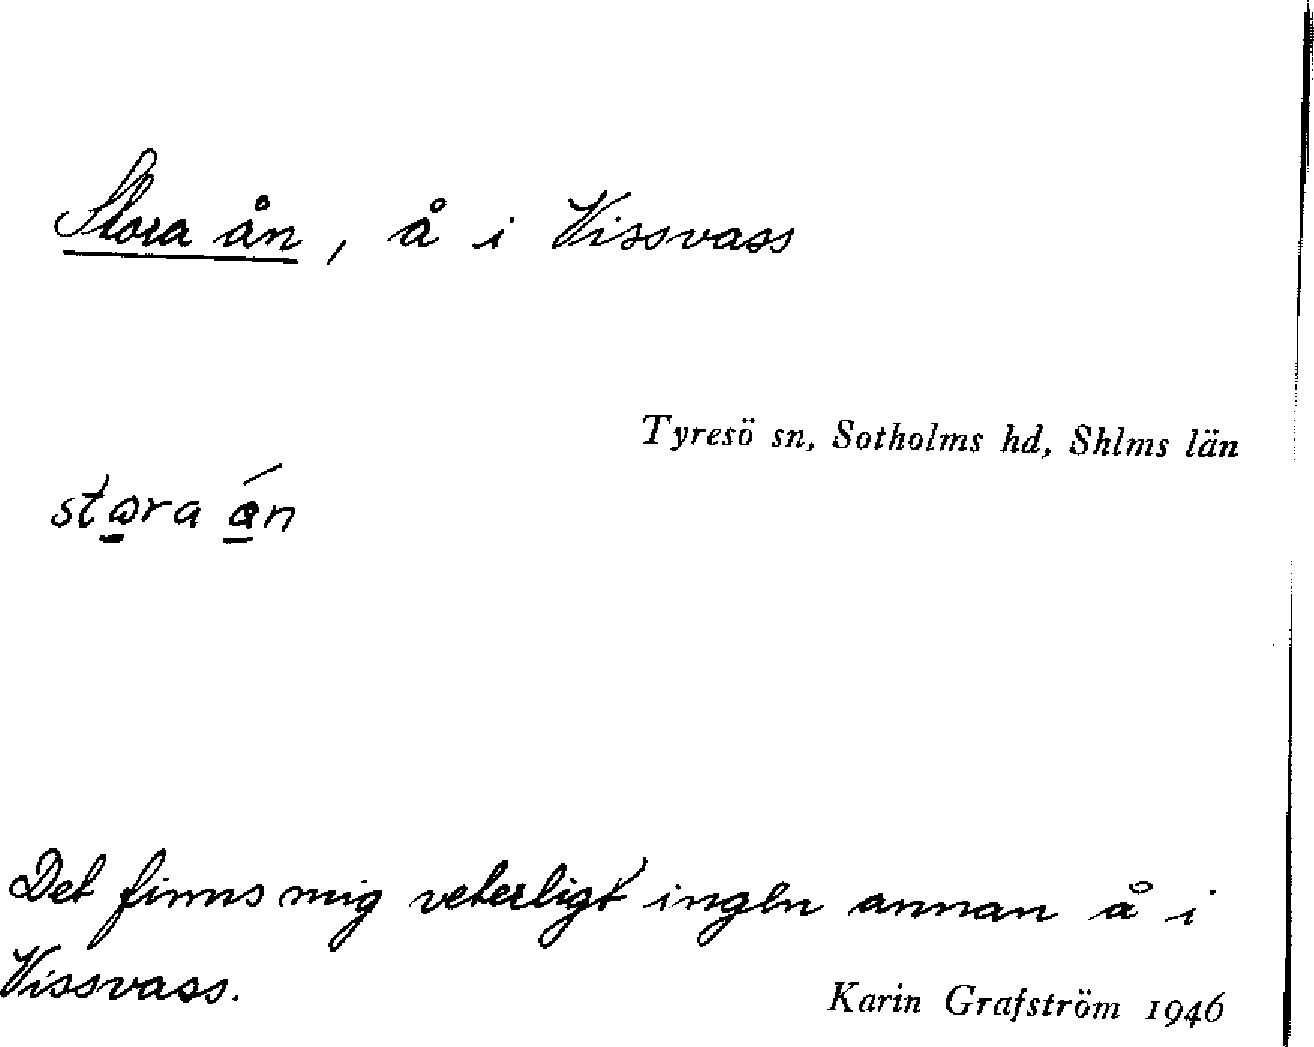 Stora ån, å i Vissvass
Tyresö sn, Sotholms hd, Shlms län
Det finns mig veterligt ingen annan å i
Vissvass.
Karin Grafström 1946